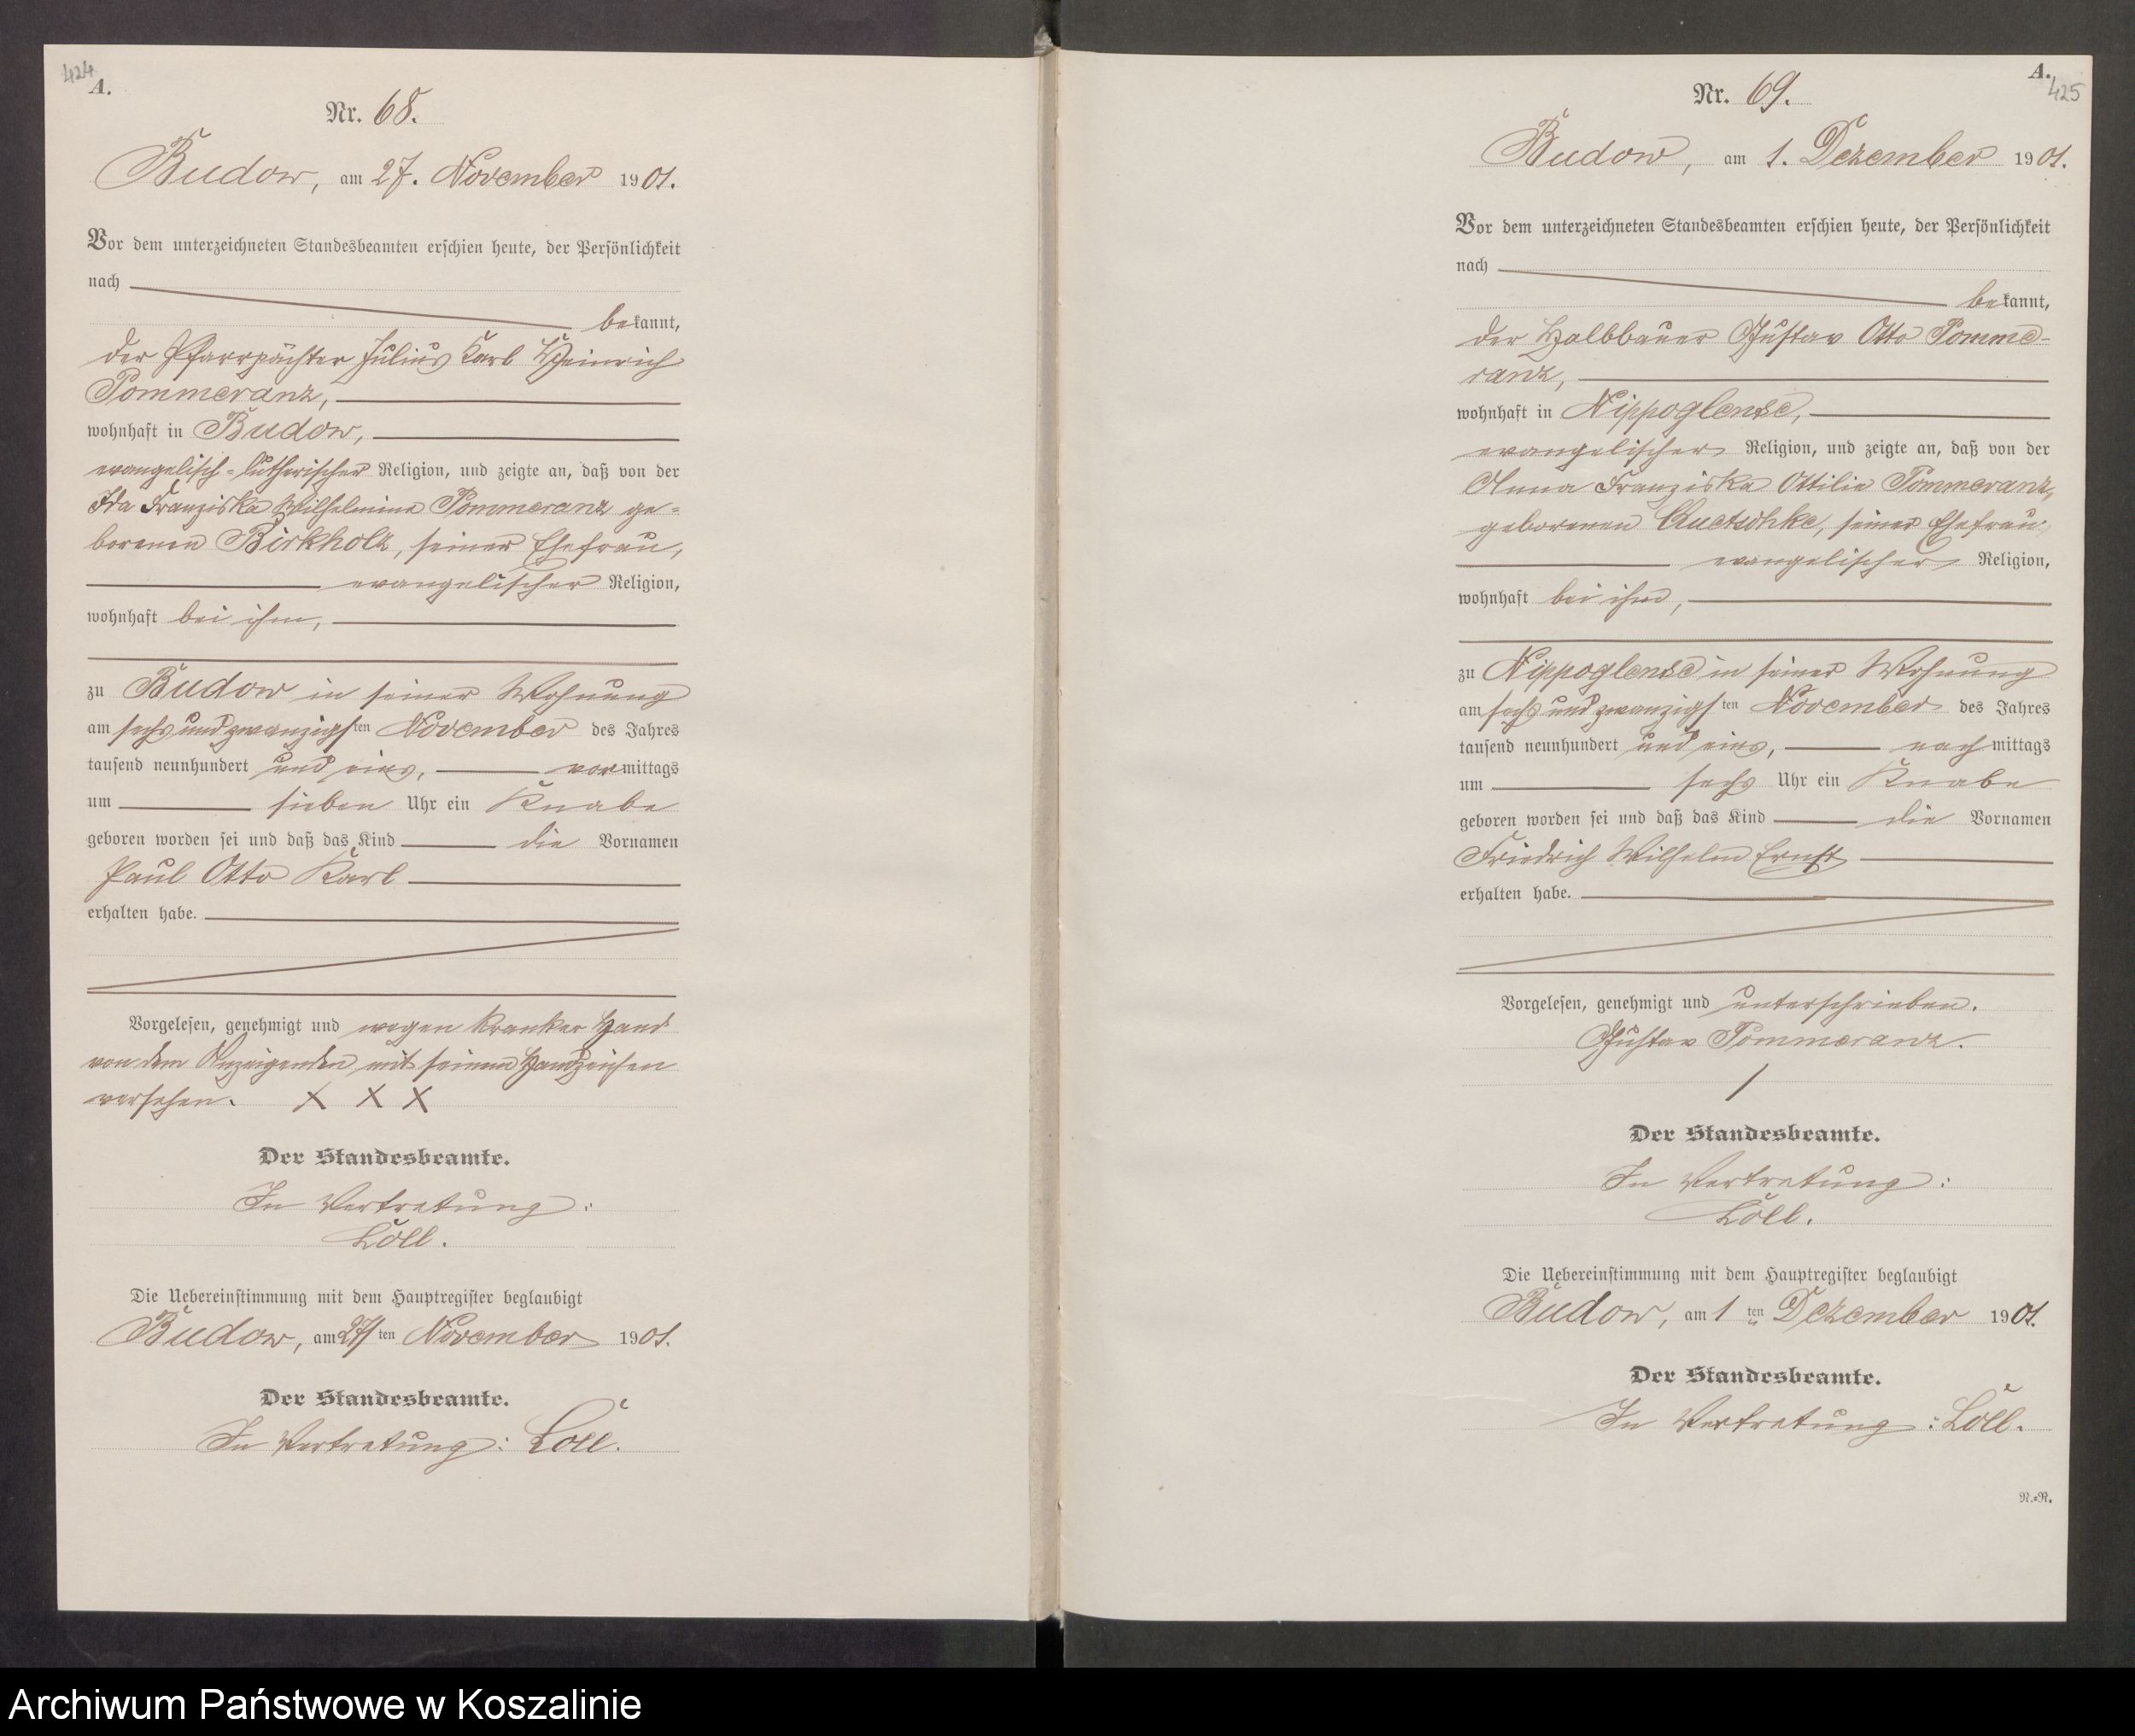 424
A.
Nr. 68.
Budow, am 27. November 1901.
Vor dem unterzeichneten Standesbeamten erschien heute, der Persönlichkeit
nach
bekannt,
der Pfarrpächter Julius Karl Heinrich
Pommeranz,
wohnhaft in Budow,
evangelisch-lutherischer Religion, und zeigte an, daß von der
Ida Franziska Wilhelmine Pommeranz ge-
borenen Birkholz, seiner Ehefrau,
evangelischer Religion,
wohnhaft bei ihm,
zu Budow in seiner Wohnung
am sechs und zwanzigsten November des Jahres
tausend neunhundert und eins, vormittags
um sieben Uhr ein Knabe
geboren worden sei und daß das Kind die Vornamen
Paul Otto Karl
erhalten habe.
Vorgelesen, genehmigt und wegen kranker Hand
von dem Anzeigenden mit seinem Handzeichen
versehen. X X X
Der Standesbeamte.
In Vertretung:
Löll.
Die Uebereinstimmung mit dem Hauptregister beglaubigt
Budow, am 27ten November 1901.
Der Standesbeamte.
In Vertretung: Löll.
A.
425
Nr. 69.
Budow, am 1. Dezember 1901.
Vor dem unterzeichneten Standesbeamten erschien heute, der Persönlichkeit
nach
bekannt,
der Halbbauer Gustav Otto Pomme-
ranz,
wohnhaft in Nippoglense,
evangelischer Religion, und zeigte an, daß von der
Anna Franziska Ottilie Pommeranz,
geborenen Quetschke, seiner Ehefrau
evangelischer Religion,
wohnhaft bei ihm,
zu Nippoglense in seiner Wohnung
am sechs und zwanzigsten November des Jahres
tausend neunhundert und eins, nachmittags
um sechs Uhr ein Knabe
geboren worden sei und daß das Kind die Vornamen
Friedrich Wilhelm Ernst
erhalten habe.
Vorgelesen, genehmigt und unterschrieben.
Gustav Pommeranz.
Der Standesbeamte.
In Vertretung:
Löll.
Die Uebereinstimmung mit dem Hauptregister beglaubigt
Budow, am 1ten Dezember 1901.
Der Standesbeamte.
In Vertretung: Löll.
N.-R.
Archiwum Państwowe w Koszalinie